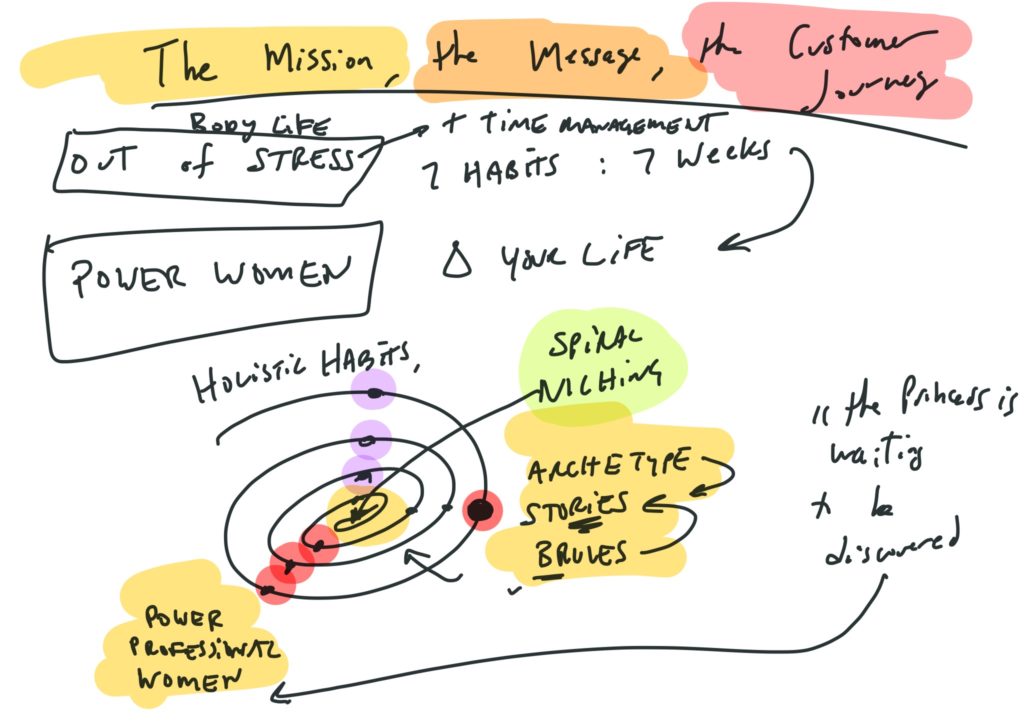 The Mission, the Message, the Customer
Journey
BODY LIFE
OUT of STRESS
+ TIME MANAGEMENT
7 HABITS : 7 Weeks
POWER WOMEN
Δ YOUR LIFE
HOLISTIC HABITS,
SPIRAL
NICHING
ARCHETYPE
STORIES
BRULES
" the Princess is
waiting
to be
discovered
POWER
PROFESSIONAL
WOMEN